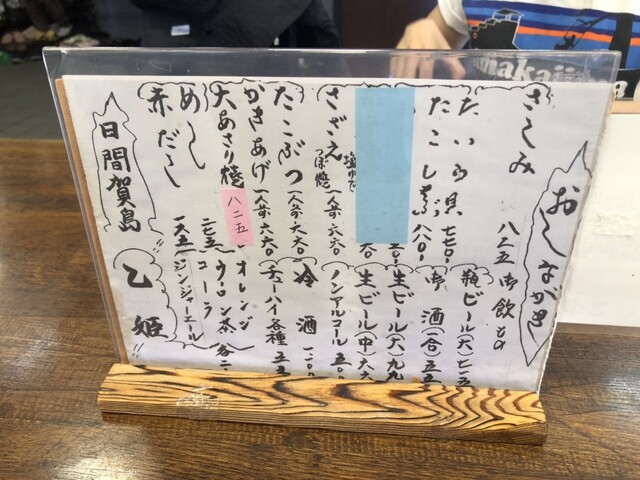 おしながき
さしみ
八二五
たいら貝
七七〇
たこしゃぶ
八八〇
さざえ
塩ゆで
つぼ焼
一人前 六六〇
たこぶつ
一人前 六六〇
かきあげ
一人前 六六〇
大あさり焼
八二五
めし
二七五
赤だし
一六五
御飲もの
瓶ビール(大)七一五
御酒(一合)五五
生ビール(大)九九
生ビール(中)六六
ノンアルコール 五〇
冷酒 一一〇〇
チューハイ各種 五五
オレンジ
ウーロン茶
コーラ
ジンジャーエール
各二
日間賀島
乙姫